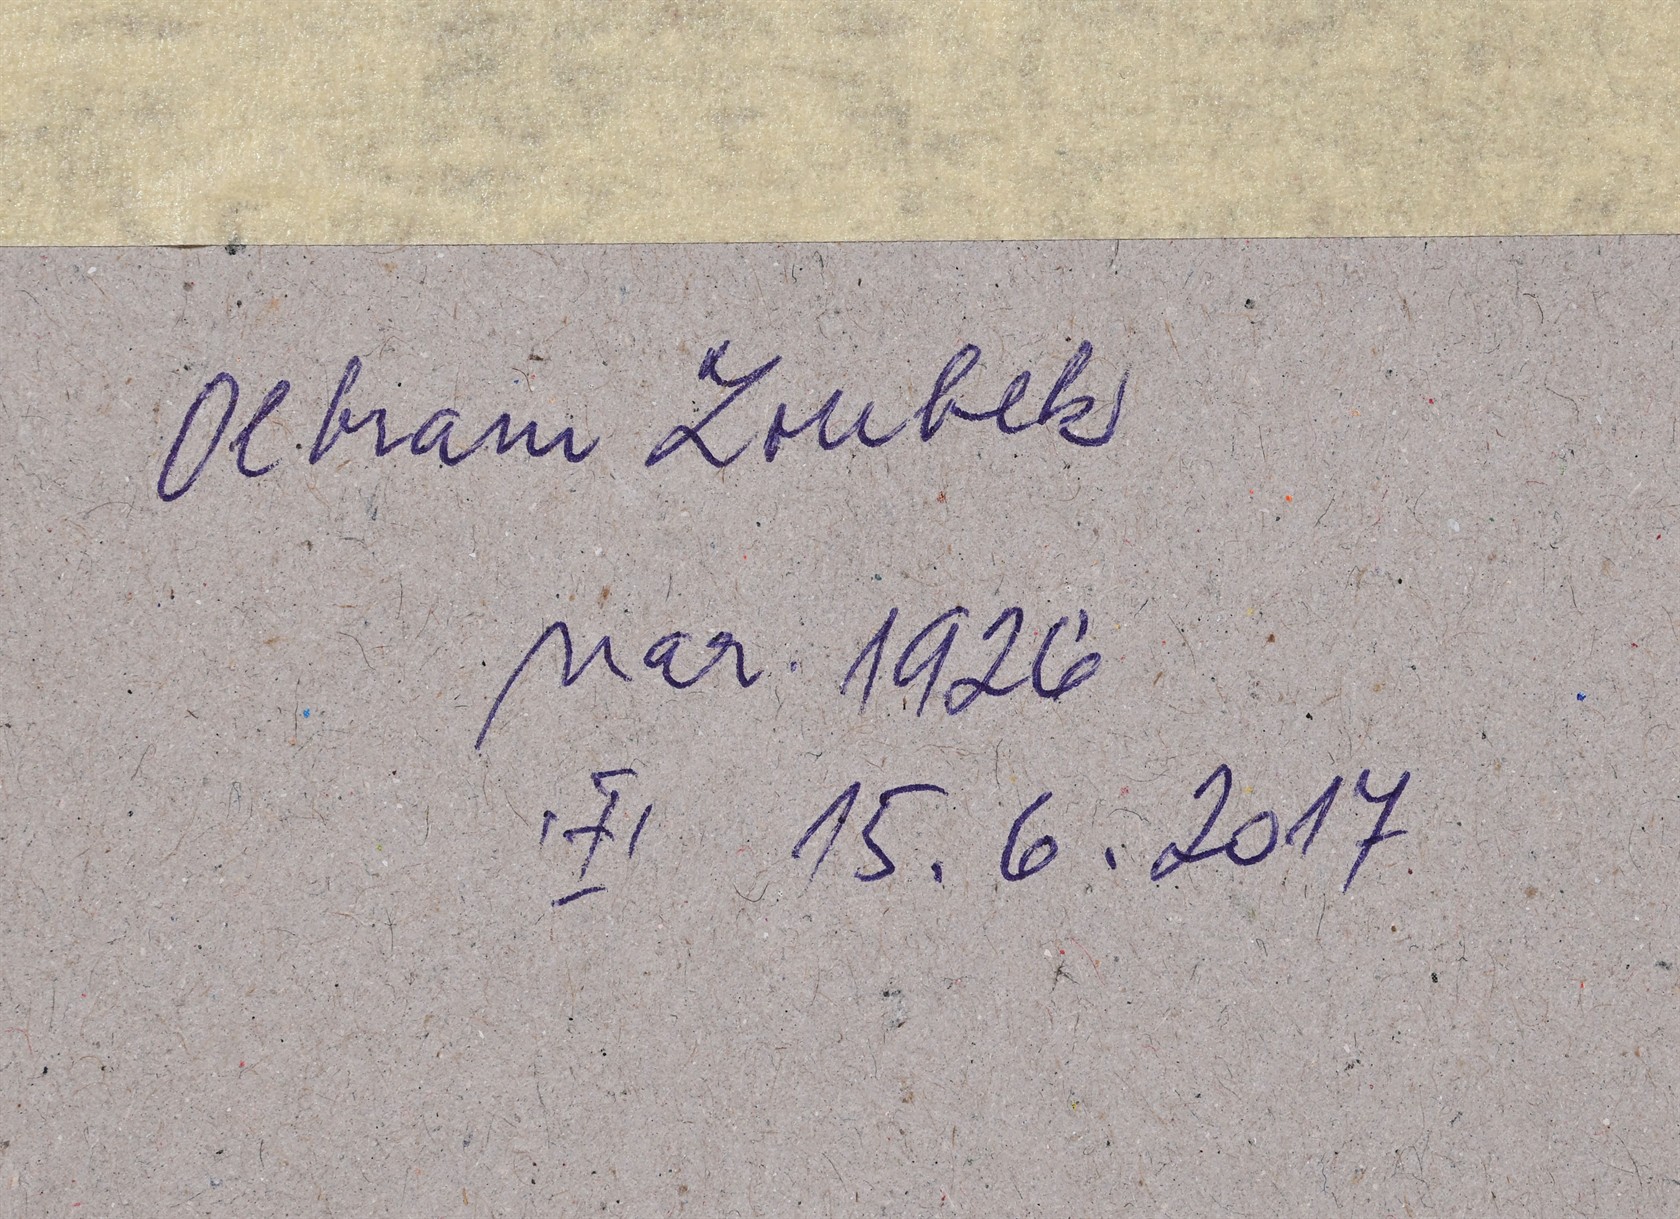 Olbram Zoubek
nar. 1926
† 15.6.2017